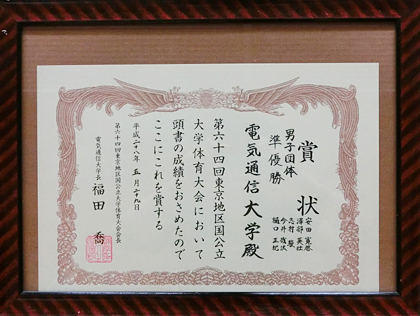 賞状
男子団体
準優勝
安田
英社
志村
今井
樋口 正紀
電気通信大学殿
第六十四回東京地区国公立
大学体育大会において
頭書の成績をおさめたので
ここにこれを賞する
平成二十八年 五月二十九日
第六十四回東京地区国公立大学体育大会会長
電気通信大学長 福田 喬